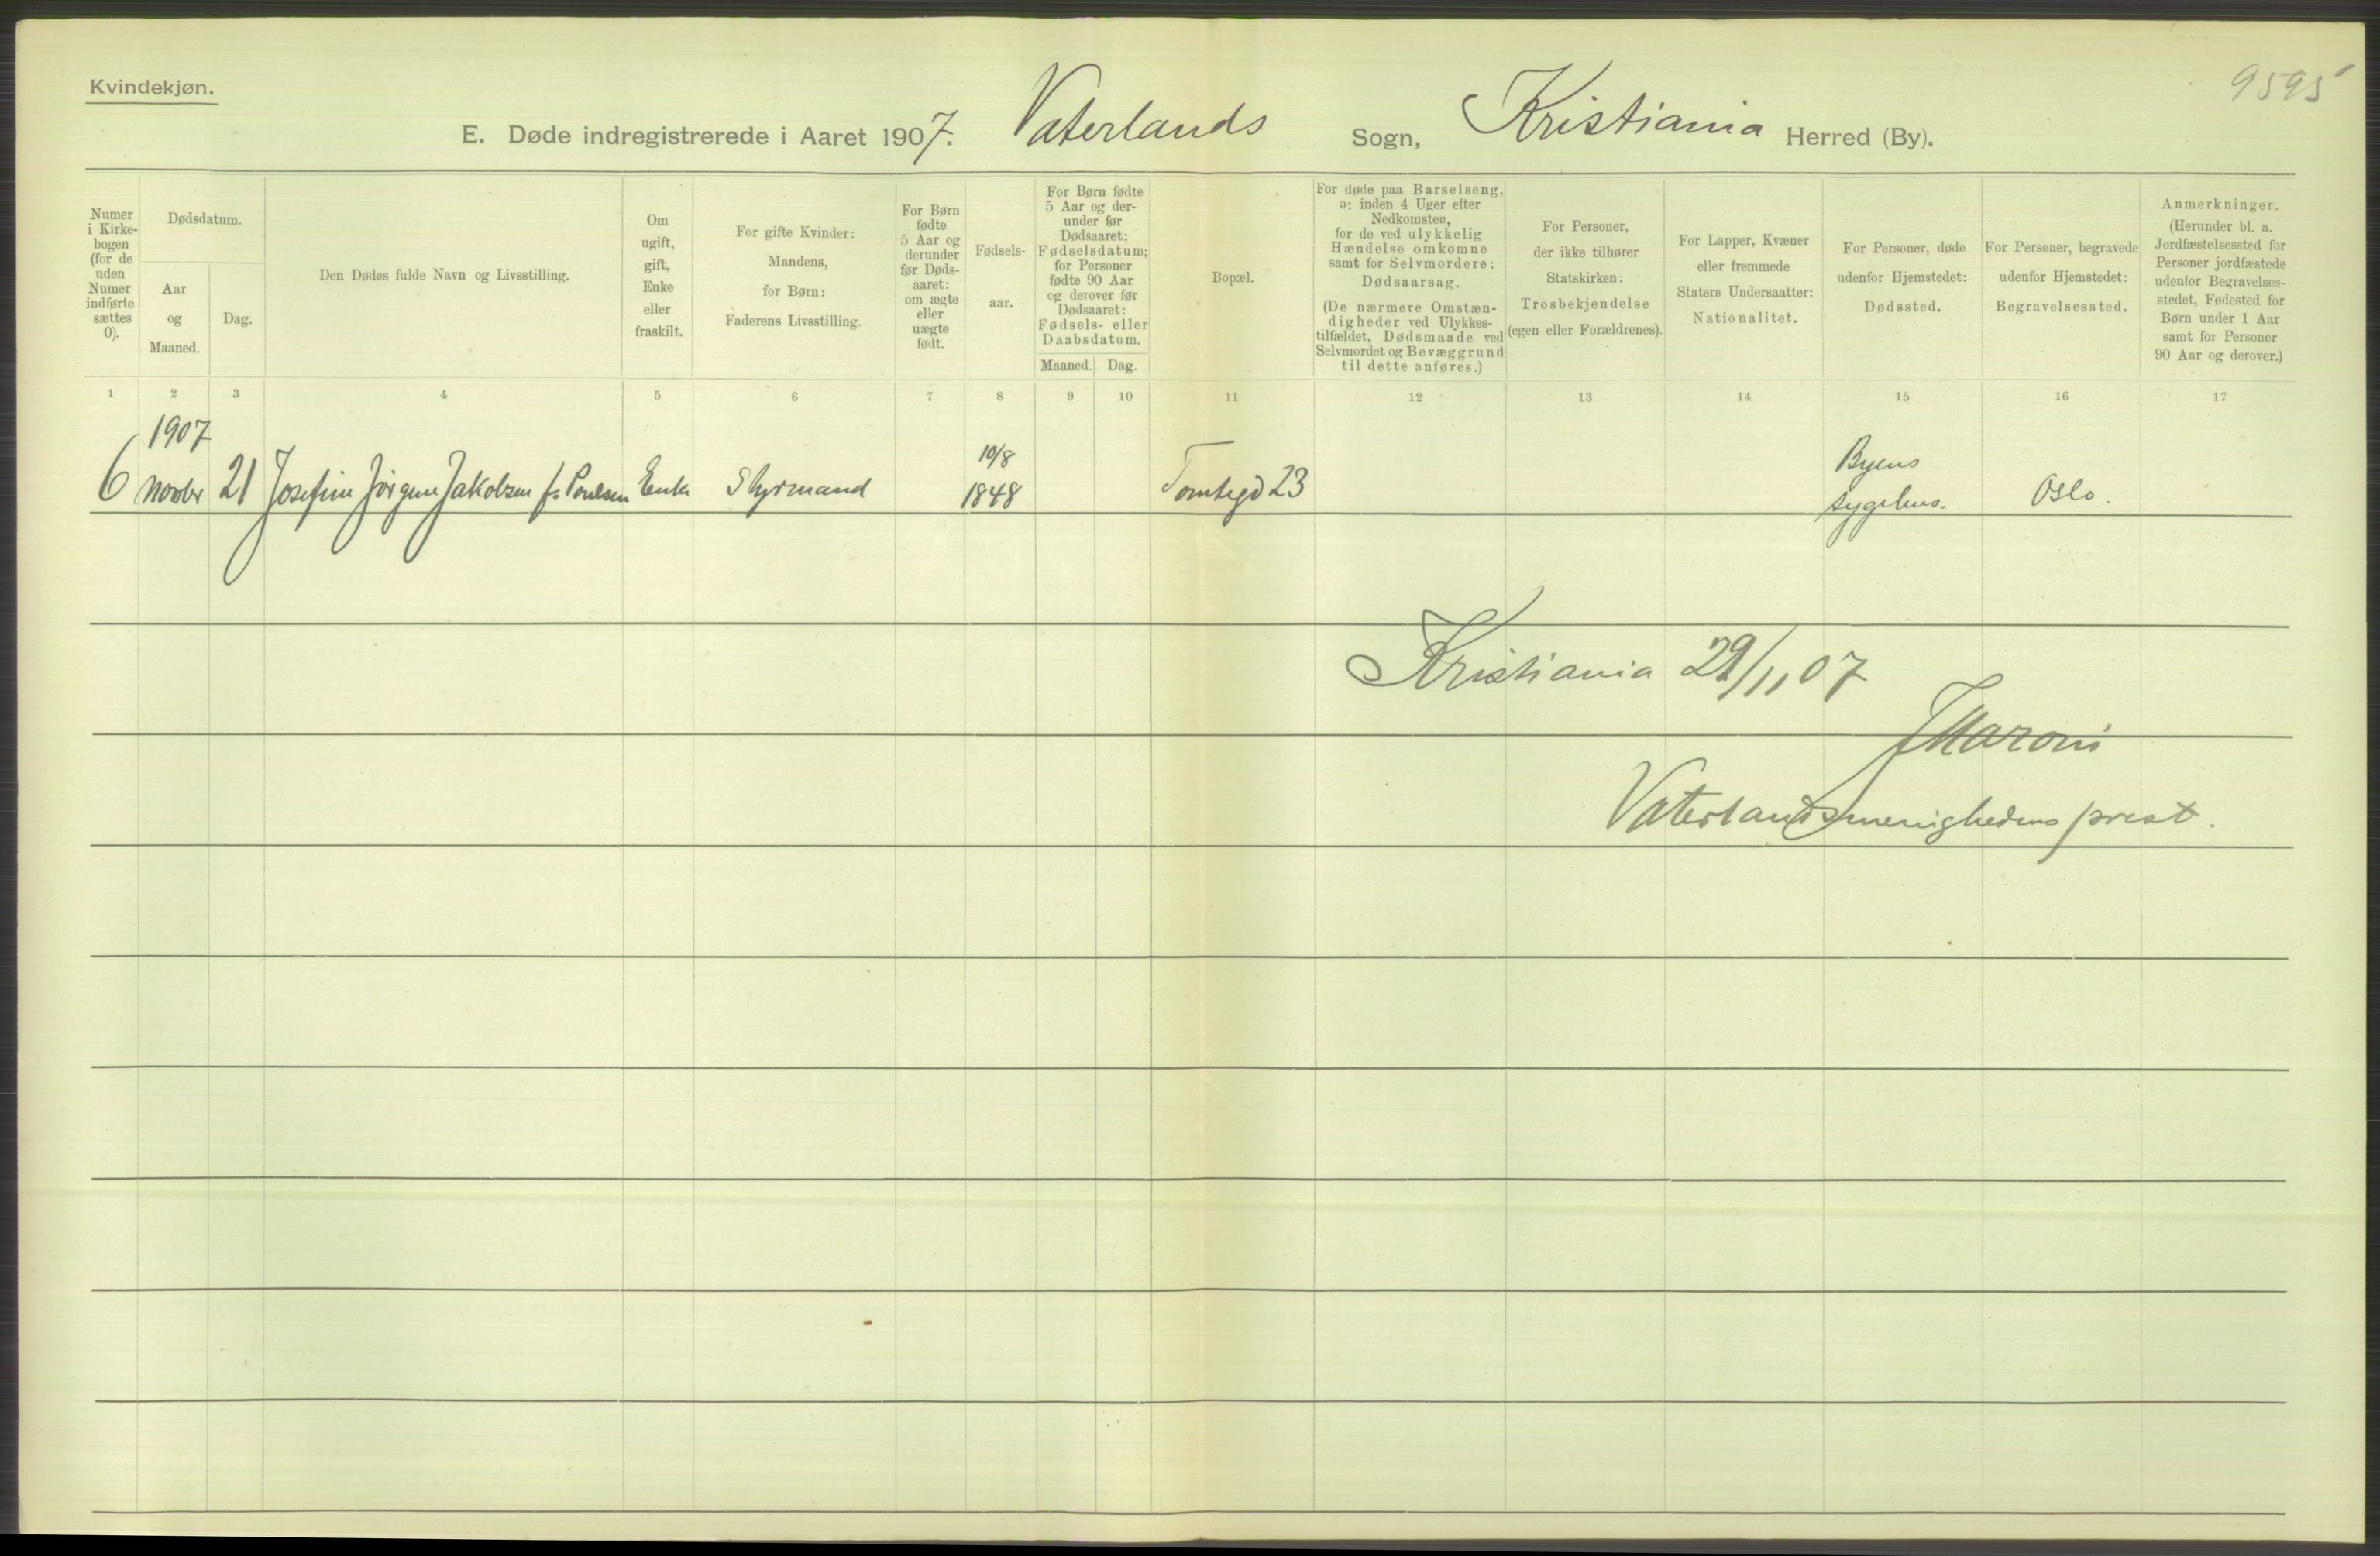 Kvindekjøn.
9595
E. Døde indregistrerede i Aaret 1907. Vaterlands Sogn, Kristiania Herred (By).
Numer
i Kirke-
bogen
(for de
uden
Numer
indførte
sættes
0).
Dødsdatum.
Aar
og
Maaned.
Dag.
Den Dødes fulde Navn og Livsstilling.
Om
ugift,
gift,
Enke
eller
fraskilt.
For gifte Kvinder:
Mandens,
for Børn:
Faderens Livsstilling.
For Børn
fødte
5 Aar og
derunder
før Døds-
aaret:
om ægte
eller
uægte
født.
Fødsels-
aar.
For Børn fødte
5 Aar og der-
under før
Dødsaaret:
Fødselsdatum;
for Personer
fødte 90 Aar
og derover før
Dødsaaret:
Fødsels- eller
Daabsdatum.
Maaned. Dag.
Bopæl.
For døde paa Barselseng,
ɔ: inden 4 Uger efter
Nedkomsten,
for de ved ulykkelig
Hændelse omkomne
samt for Selvmordere:
Dødsaarsag.
(De nærmere Omstæn-
digheder ved Ulykkes-
tilfældet, Dødsmaade ved
Selvmordet og Bevæggrund
til dette anføres.)
For Personer,
der ikke tilhører
Statskirken:
Trosbekjendelse
(egen eller Forældrenes).
For Lapper, Kvæner
eller fremmede
Staters Undersaatter:
Nationalitet.
For Personer, døde
udenfor Hjemstedet:
Dødssted.
For Personer, begravede
udenfor Hjemstedet:
Begravelsessted.
Anmerkninger.
(Herunder bl. a.
Jordfæstelsessted for
Personer jordfæstede
udenfor Begravelses-
stedet, Fødested for
Børn under 1 Aar
samt for Personer
90 Aar og derover.)
1 2 3 4 5 6 7 8 9 10 11 12 13 14 15 16 17
1907
10/8
Byens
6 Novbr 21 Josefine Jørgine Jakobsen f. Poulsen Enke Styrmand 1848 Tomtegd 23 sygehus. Oslo.
Kristiania 29/11 07
J Maroni
Vaterlandsmenighedens prest.